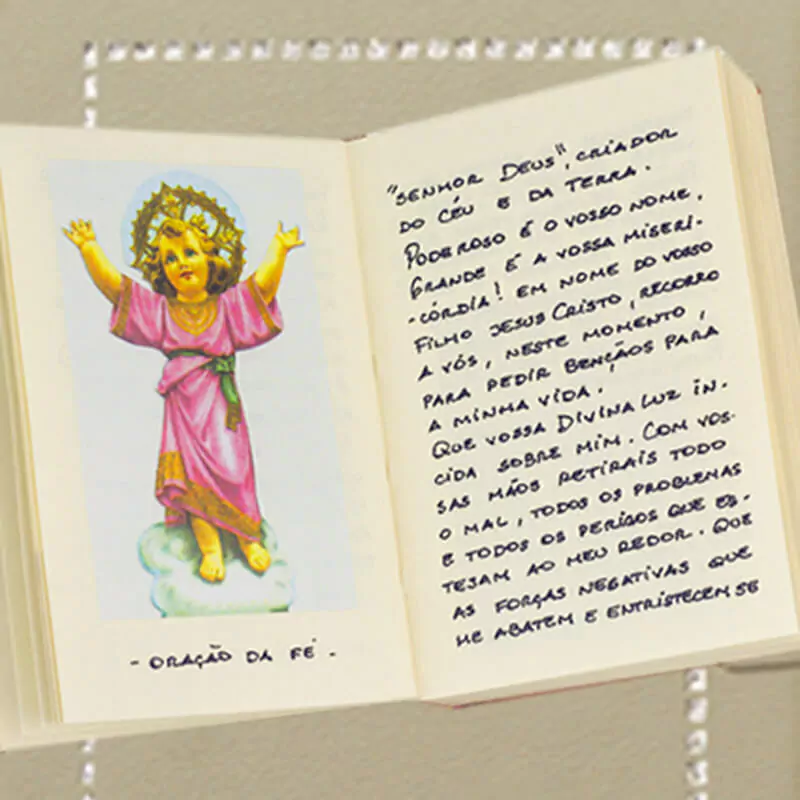 - ORAÇÃO DA FÉ -
"SENHOR DEUS", CRIADOR
DO CÉU E DA TERRA.
PODEROSO É O VOSSO NOME,
GRANDE É A VOSSA MISERI-
-CÓRDIA! EM NOME DO VOSSO
FILHO JESUS CRISTO, RECORRO
A VÓS, NESTE MOMENTO,
PARA PEDIR BENÇÃOS PARA
A MINHA VIDA.
QUE VOSSA DIVINA LUZ IN-
CIDA SOBRE MIM. COM VOS-
SAS MÃOS RETIRAIS TODO
O MAL, TODOS OS PROBLEMAS
E TODOS OS PERIGOS QUE ES-
TEJAM AO MEU REDOR. QUE
AS FORÇAS NEGATIVAS QUE
ME ABATEM E ENTRISTECEM SE